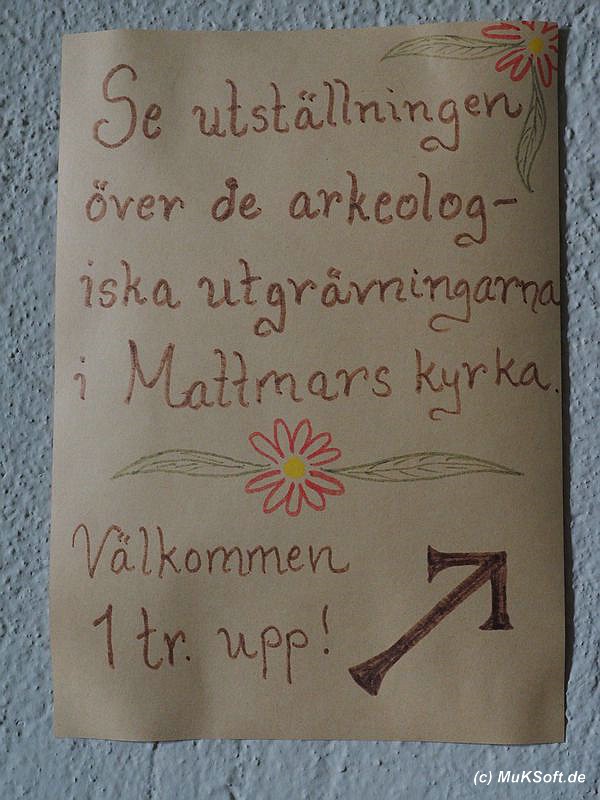 Se utställningen
över de arkeolog-
iska utgrävningarna
i Mattmars kyrka.
Välkommen
1 tr. upp!
(c) MuKSoft.de